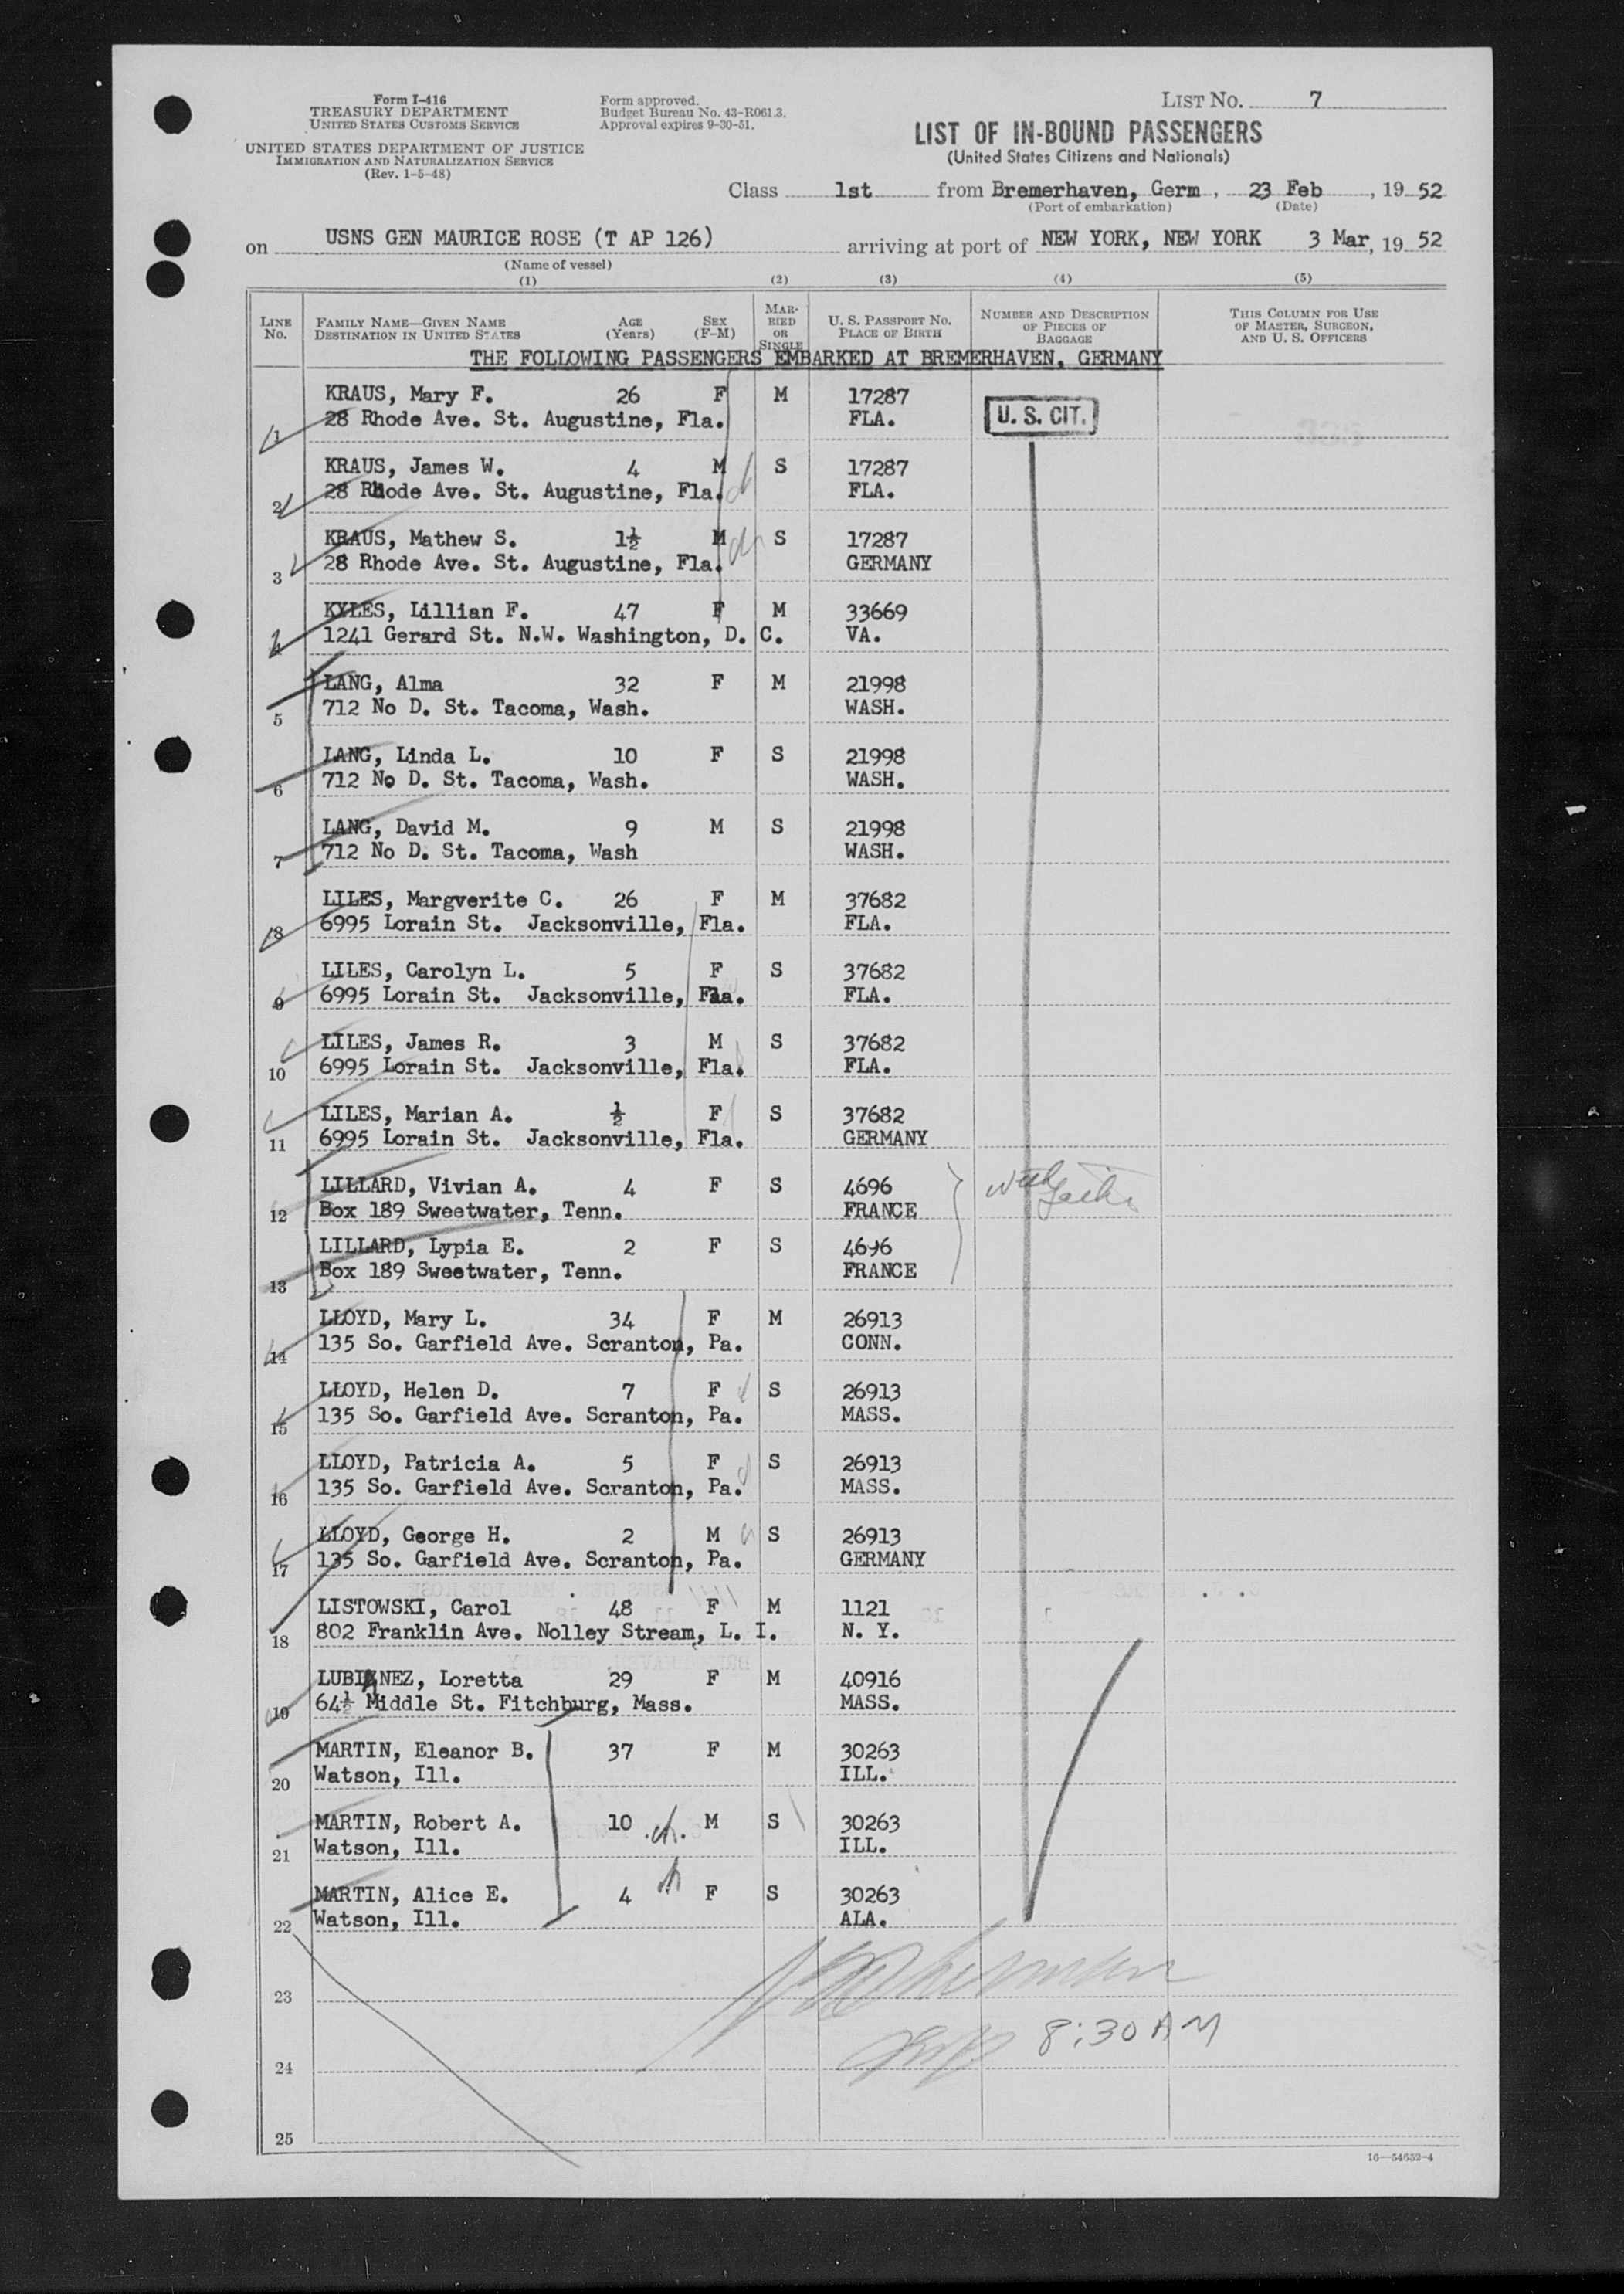 Form I-416
TREASURY DEPARTMENT
UNITED STATES CUSTOMS SERVICE
UNITED STATES DEPARTMENT OF JUSTICE
IMMIGRATION AND NATURALIZATION SERVICE
(Rev. 1-5-48)
Form approved.
Budget Bureau No. 43-R061.3.
Approval expires 9-30-51.
LIST NO. 7
LIST OF IN-BOUND PASSENGERS
(United States Citizens and Nationals)
Class 1st from Bremerhaven, Germ, 23 Feb, 19 52
(Port of embarkation) (Date)
on USNS GEN MAURICE ROSE (T AP 126) arriving at port of NEW YORK, NEW YORK 3 Mar, 19 52
(Name of vessel)
(1) (2) (3) (4) (5)
LINE No. FAMILY NAME—GIVEN NAME DESTINATION IN UNITED STATES AGE (Years) SEX (F-M) MARRIED OR SINGLE U. S. PASSPORT NO. PLACE OF BIRTH NUMBER AND DESCRIPTION OF PIECES OF BAGGAGE THIS COLUMN FOR USE OF MASTER, SURGEON, AND U. S. OFFICERS
THE FOLLOWING PASSENGERS EMBARKED AT BREMERHAVEN, GERMANY
KRAUS, Mary F. 26 F M 17287
1 28 Rhode Ave. St. Augustine, Fla. FLA. U. S. CIT.
KRAUS, James W. 4 M S 17287
2 28 Rhode Ave. St. Augustine, Fla. FLA.
KRAUS, Mathew S. 1½ M S 17287
3 28 Rhode Ave. St. Augustine, Fla. GERMANY
KYLES, Lillian F. 47 F M 33669
4 1241 Gerard St. N.W. Washington, D. C. VA.
LANG, Alma 32 F M 21998
5 712 No D. St. Tacoma, Wash. WASH.
LANG, Linda L. 10 F S 21998
6 712 No D. St. Tacoma, Wash. WASH.
LANG, David M. 9 M S 21998
7 712 No D. St. Tacoma, Wash WASH.
LILES, Margverite C. 26 F M 37682
8 6995 Lorain St. Jacksonville, Fla. FLA.
LILES, Carolyn L. 5 F S 37682
9 6995 Lorain St. Jacksonville, Fla. FLA.
LILES, James R. 3 M S 37682
10 6995 Lorain St. Jacksonville, Fla. FLA.
LILES, Marian A. ½ F S 37682
11 6995 Lorain St. Jacksonville, Fla. GERMANY
LILLARD, Vivian A. 4 F S 4696 with
12 Box 189 Sweetwater, Tenn. FRANCE
LILLARD, Lypia E. 2 F S 4696
13 Box 189 Sweetwater, Tenn. FRANCE
LLOYD, Mary L. 34 F M 26913
14 135 So. Garfield Ave. Scranton, Pa. CONN.
LLOYD, Helen D. 7 F S 26913
15 135 So. Garfield Ave. Scranton, Pa. MASS.
LLOYD, Patricia A. 5 F S 26913
16 135 So. Garfield Ave. Scranton, Pa. MASS.
LLOYD, George H. 2 M S 26913
17 135 So. Garfield Ave. Scranton, Pa. GERMANY
LISTOWSKI, Carol 48 F M 1121
18 802 Franklin Ave. Nolley Stream, L. I. N. Y.
LUBIANEZ, Loretta 29 F M 40916
19 64½ Middle St. Fitchburg, Mass. MASS.
MARTIN, Eleanor B. 37 F M 30263
20 Watson, Ill. ILL.
MARTIN, Robert A. 10 ch. M S 30263
21 Watson, Ill. ILL.
MARTIN, Alice E. 4 ch F S 30263
22 Watson, Ill. ALA.
23
8:30 AM
24
25
16—54652-4